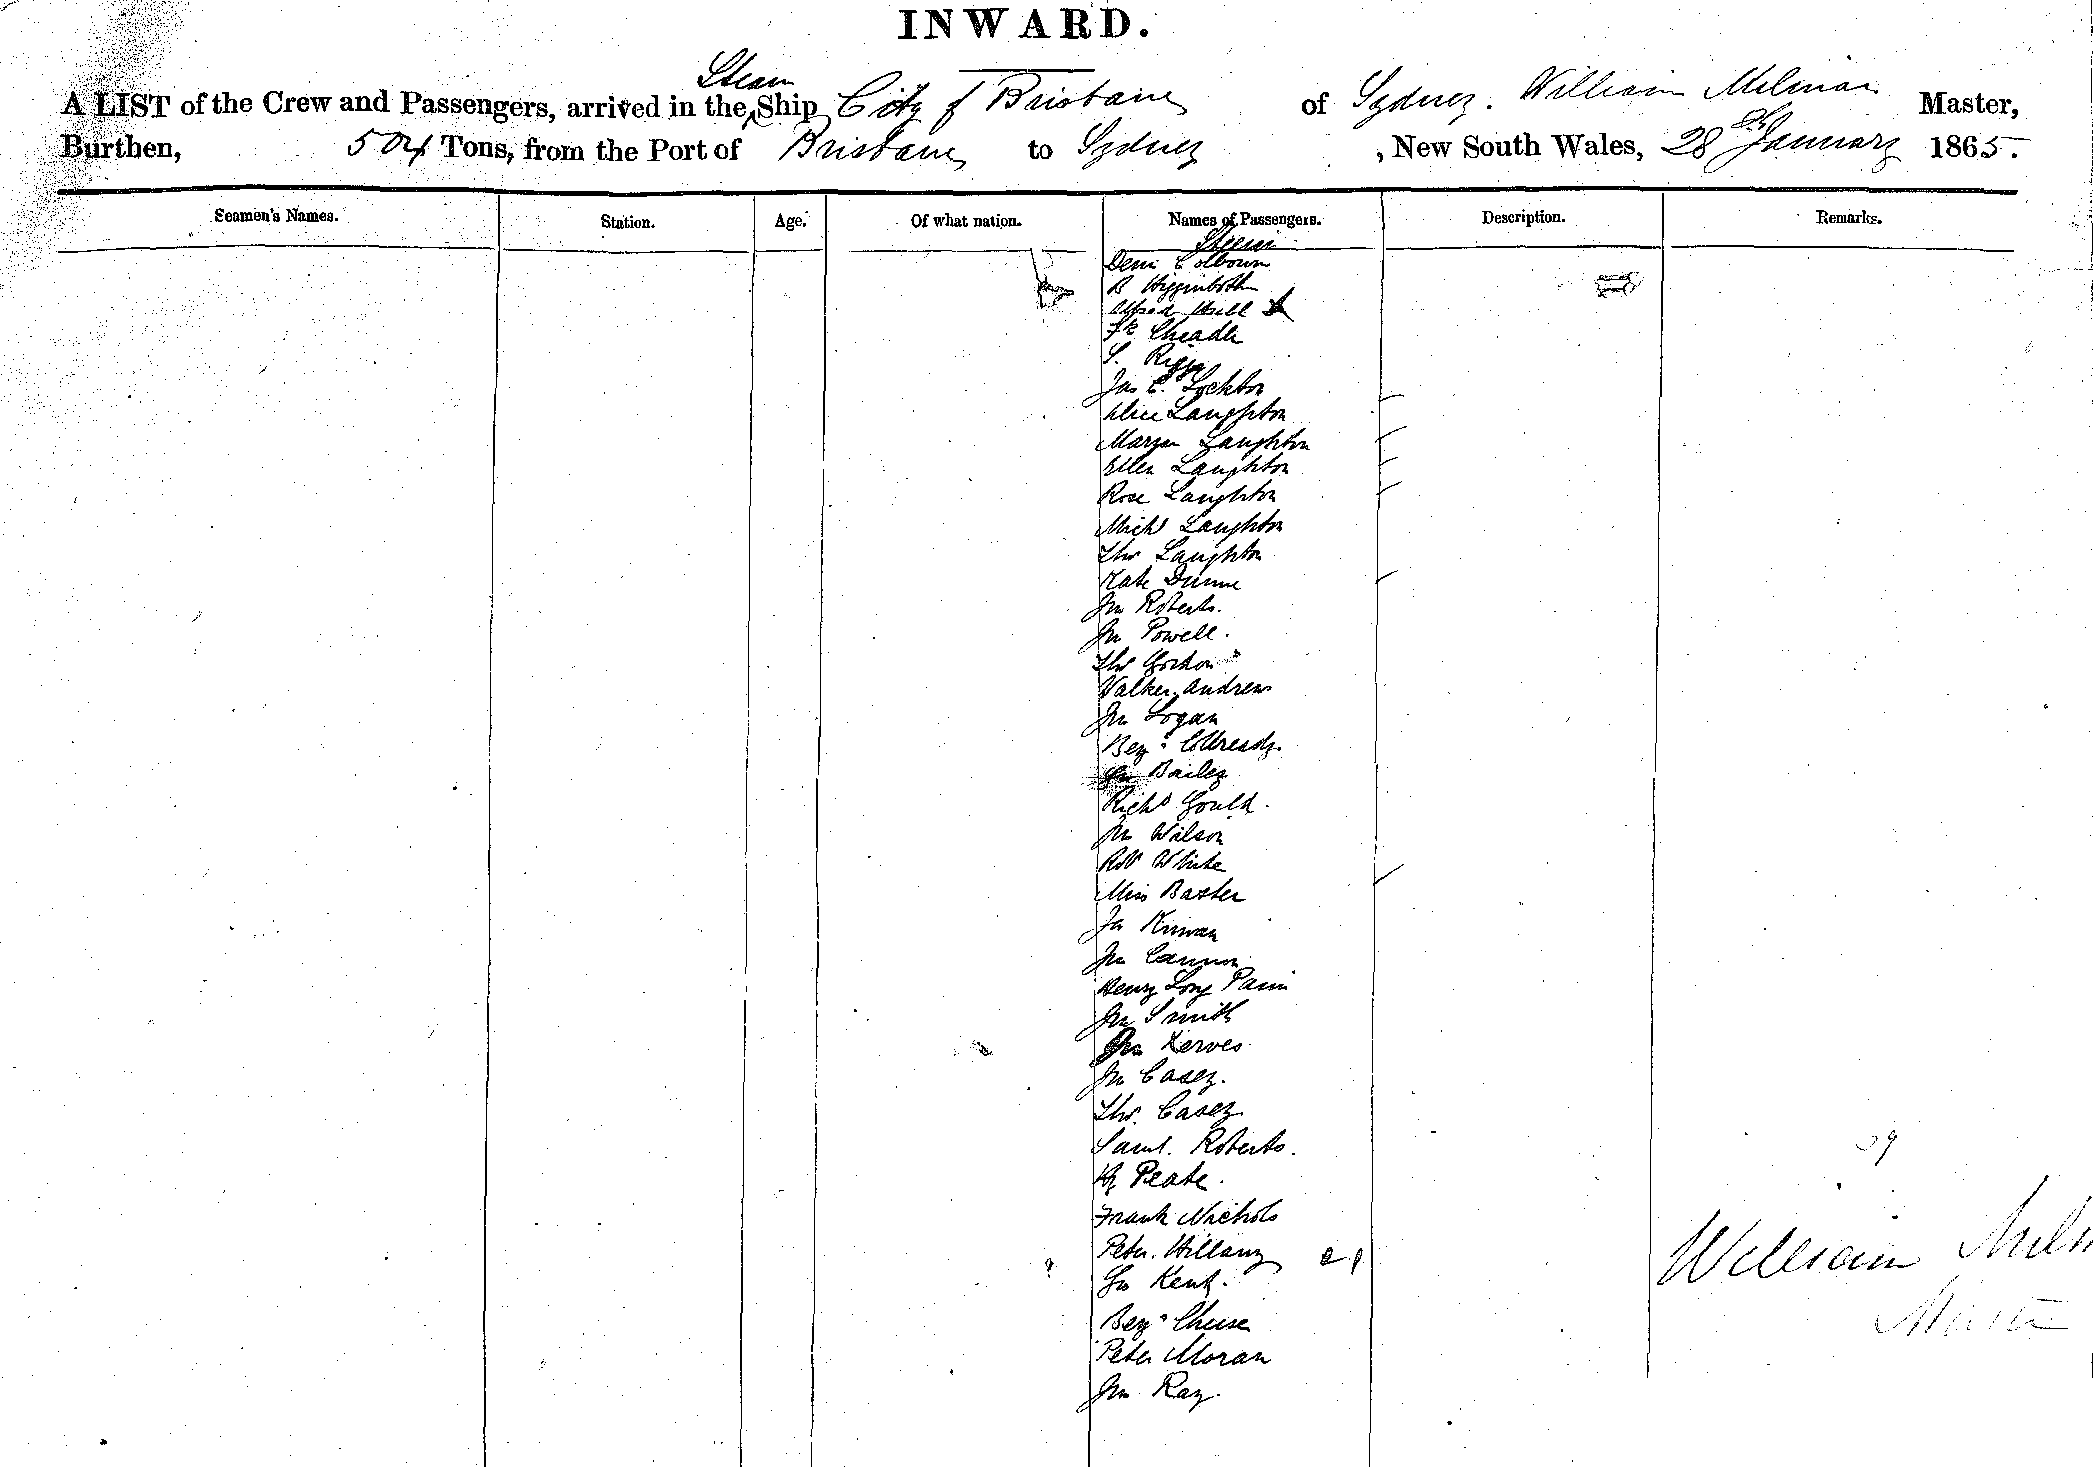 INWARD.
Steam
A LIST of the Crew and Passengers, arrived in the Ship City of Brisbane of Sydney. William Milman Master,
Burthen, 504 Tons, from the Port of Brisbane to Sydney, New South Wales, 28th January 1865.
Seamen's Names. Station. Age. Of what nation. Names of Passengers. Description. Remarks.
Colbourn
B Higginboth
Alfred Hill
Cheadle
S. Rigg
Jas E. Lockton
Alice Laughton
Laughton
Ellen Laughton
Rose Laughton
Michl Laughton
Thos Laughton
Kate Dunne
Jno Roberts.
Jno Powell.
Thos Gordon
Walker Andrew
Jno Logan
Benjn
Jno Bailey
Richd Gould.
Jno Wilson
Robt White
Miss Baxter
Jas Kirwan
Jno Cannon
Henry Long
Jno Smith
Jno Kerves
Jno Casey.
Thos. Casey
Saml. Roberts.
Hy Peate.
Frank Nichols
Peter. Hillary
Geo Kent.
Benjn Cheese
Peter Moran
Jno Ray.
39
William Milm
Master